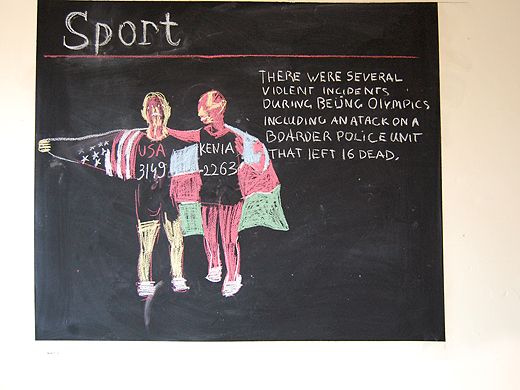 Sport
THERE WERE SEVERAL
VIOLENT INCIDENTS
DURING BEIJNG OLYMPICS
INCLUDING AN ATACK ON A
BOARDER POLICE UNIT
THAT lEFT 16 DEAD.
USA KENIA
3149 2263